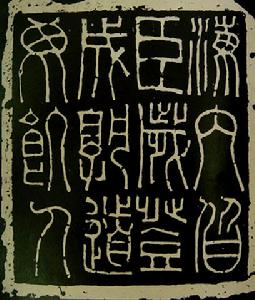 海内皆
臣歲登
成孰道
毋飢人